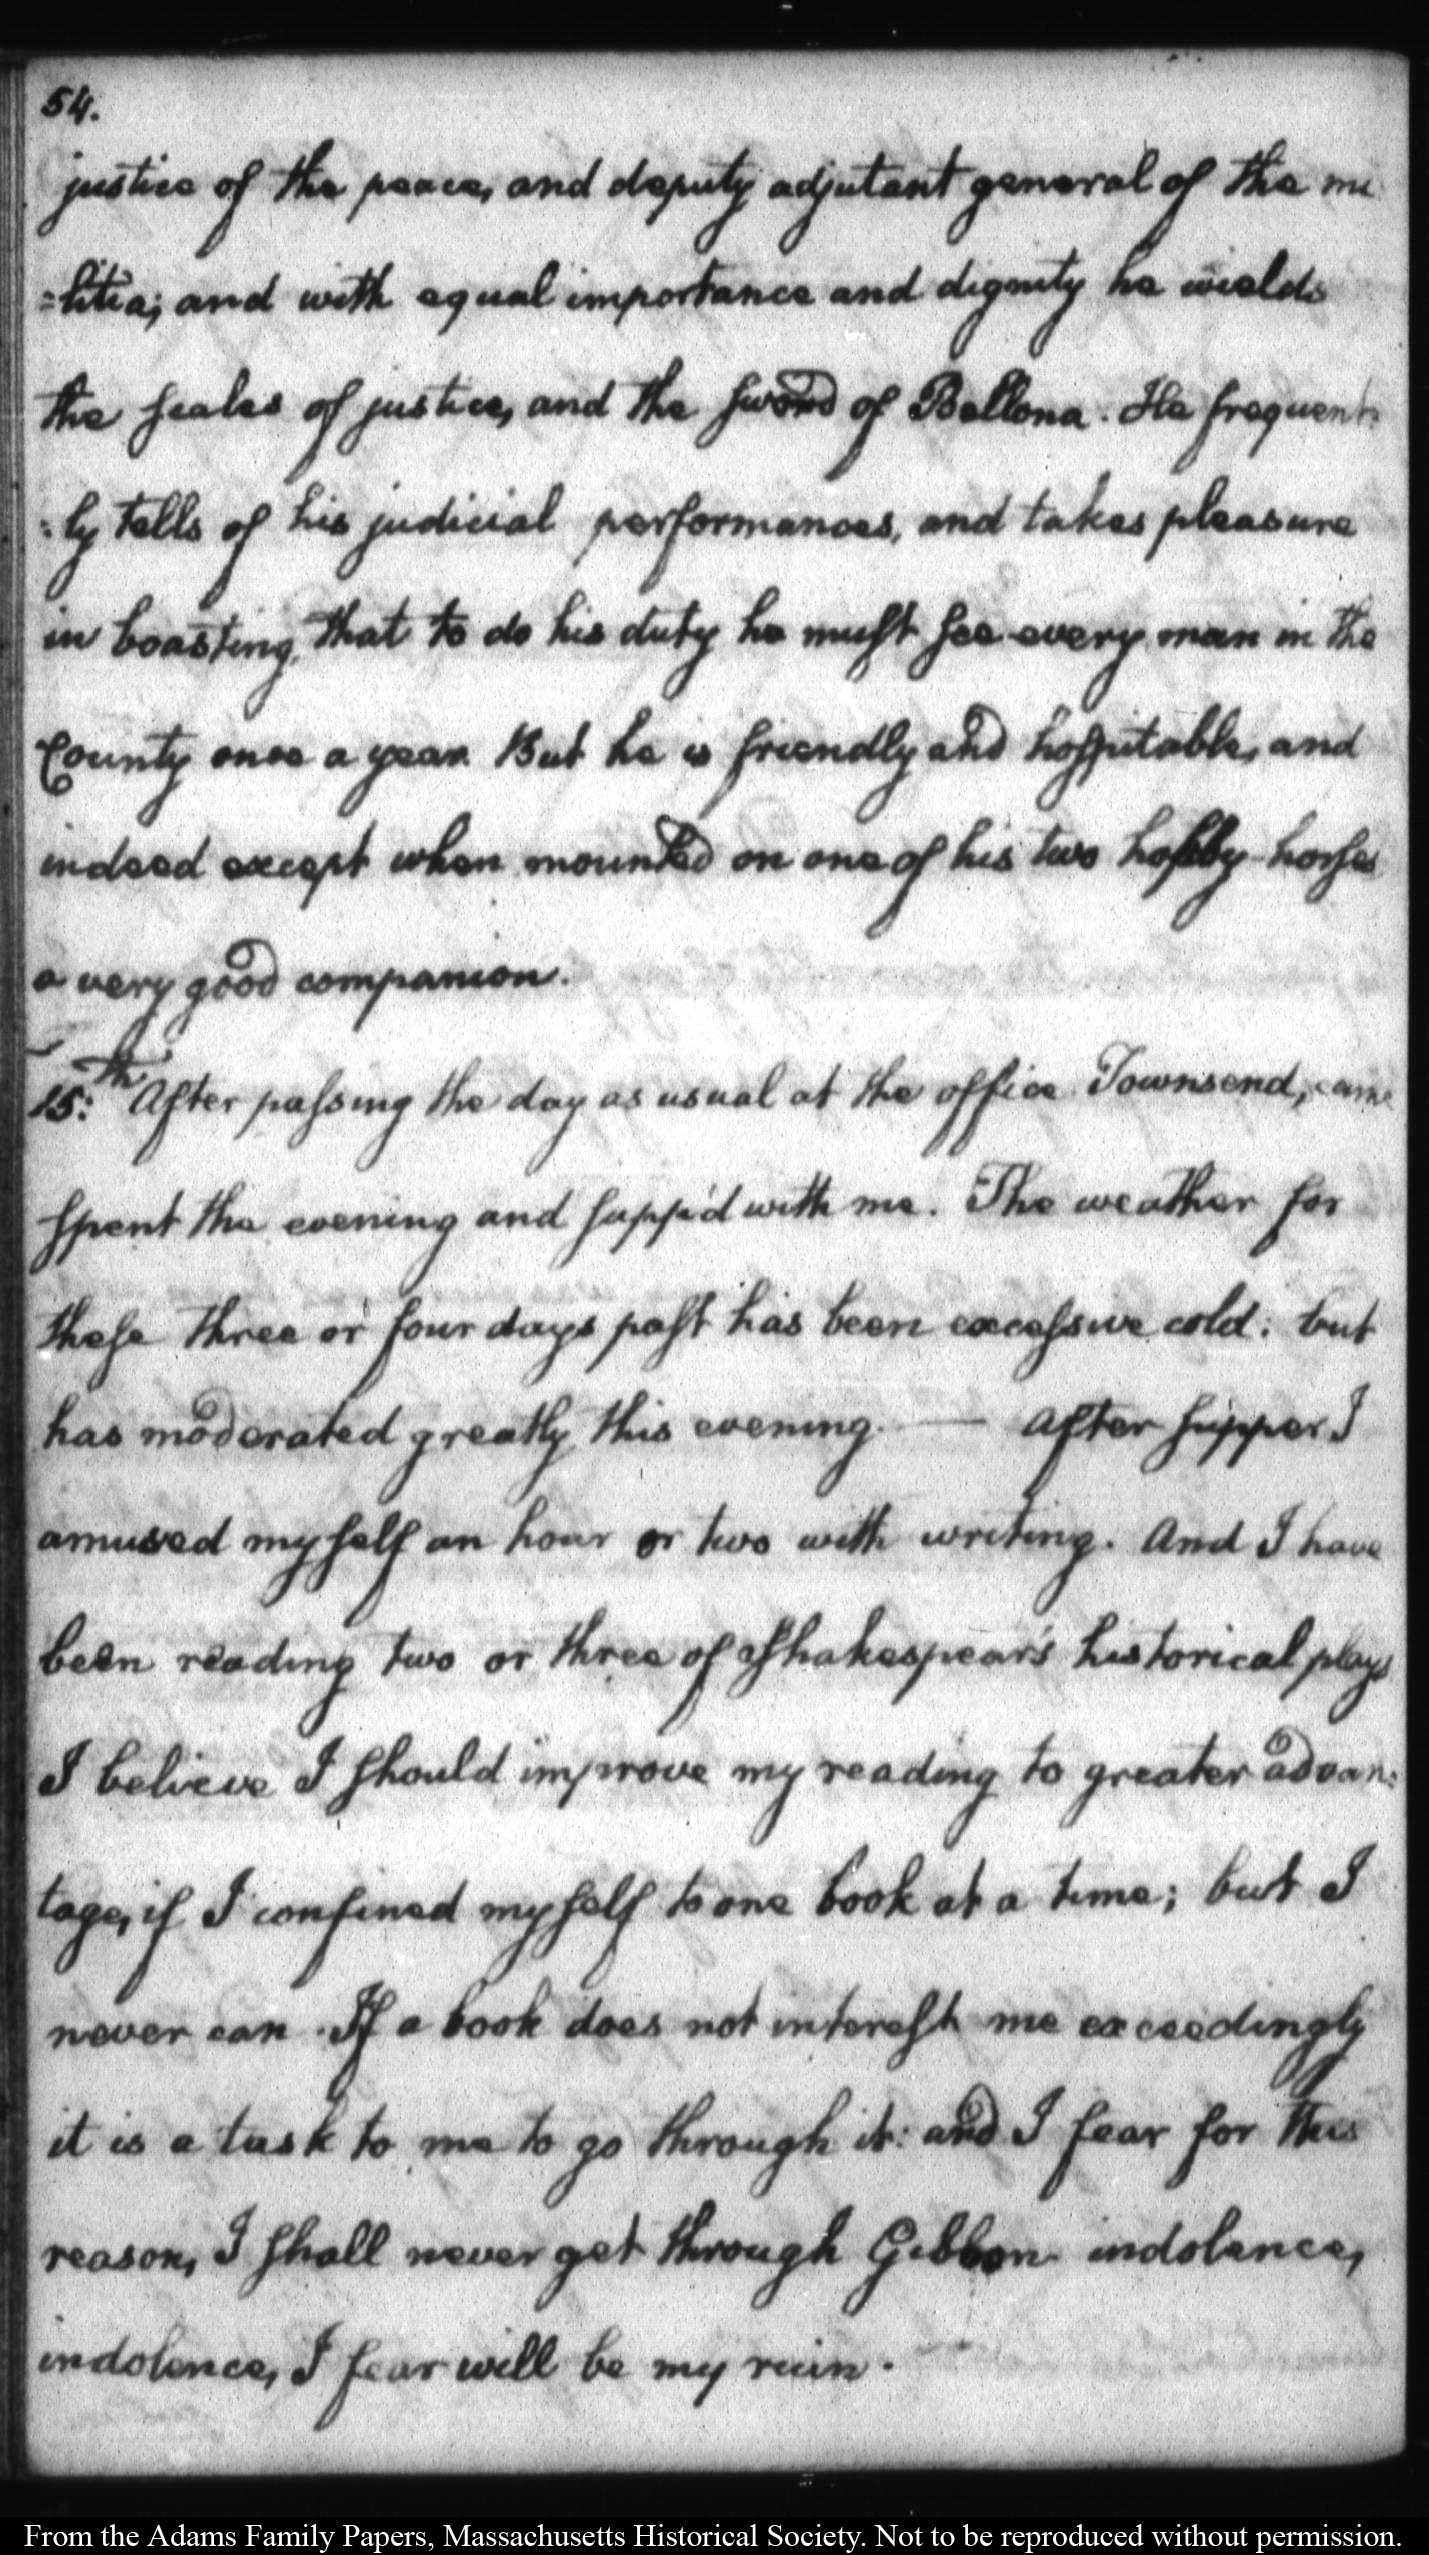 54.
justice of the peace, and deputy adjutant general of the mi
=litia; and with equal importance and dignity he wields
the scales of justice, and the sword of Bellona. He frequent:
:ly tells of his judicial performances, and takes pleasure
in boasting, that to do his duty he must see every man in the
County once a year. But he is friendly and hospitable, and
indeed except when mounted on one of his two hobby-horses
a very good companion.
15:th After passing the day as usual at the office Townsend, came
spent the evening and supp'd with me. The weather for
these three or four days past has been excessive cold: but
has moderated greatly this evening. — After supper I
amused myself an hour or two with writing. And I have
been reading two or three of Shakespear's historical plays
I believe I should improve my reading to greater advan:
tage, if I confined myself to one book at a time; but I
never can. If a book does not interest me exceedingly
it is a task to me to go through it: and I fear for this
reason, I shall never get through Gibbon. indolence,
indolence, I fear will be my ruin.
From the Adams Family Papers, Massachusetts Historical Society. Not to be reproduced without permission.